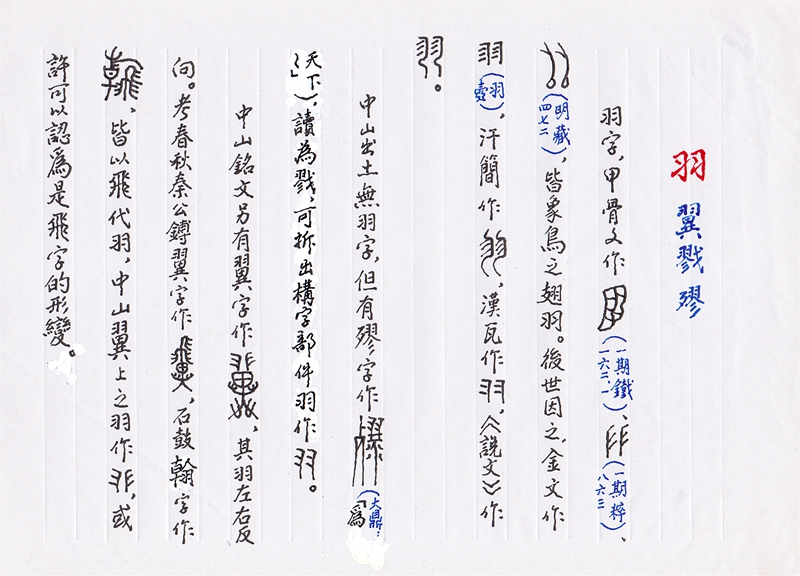 羽 翼戮漻
羽字,甲骨文作(一期鐵一六二.一)、(一期粹八六三)、
(明藏四七二),皆象鳥之翅羽。後世因之,金文作
羽(羽壺),汗簡作,漢瓦作羽,《說文》作
羽。
中山出土無羽字,但有漻字作(大鼎:「爲
天下」),讀為戮,可拆出構字部件羽作羽。
中山銘文另有翼字作,其羽左右反
向。考春秋秦公鎛翼字作,石鼓翰字作
,皆以飛代羽,中山翼上之羽作,或
許可以認爲是飛字的形變。